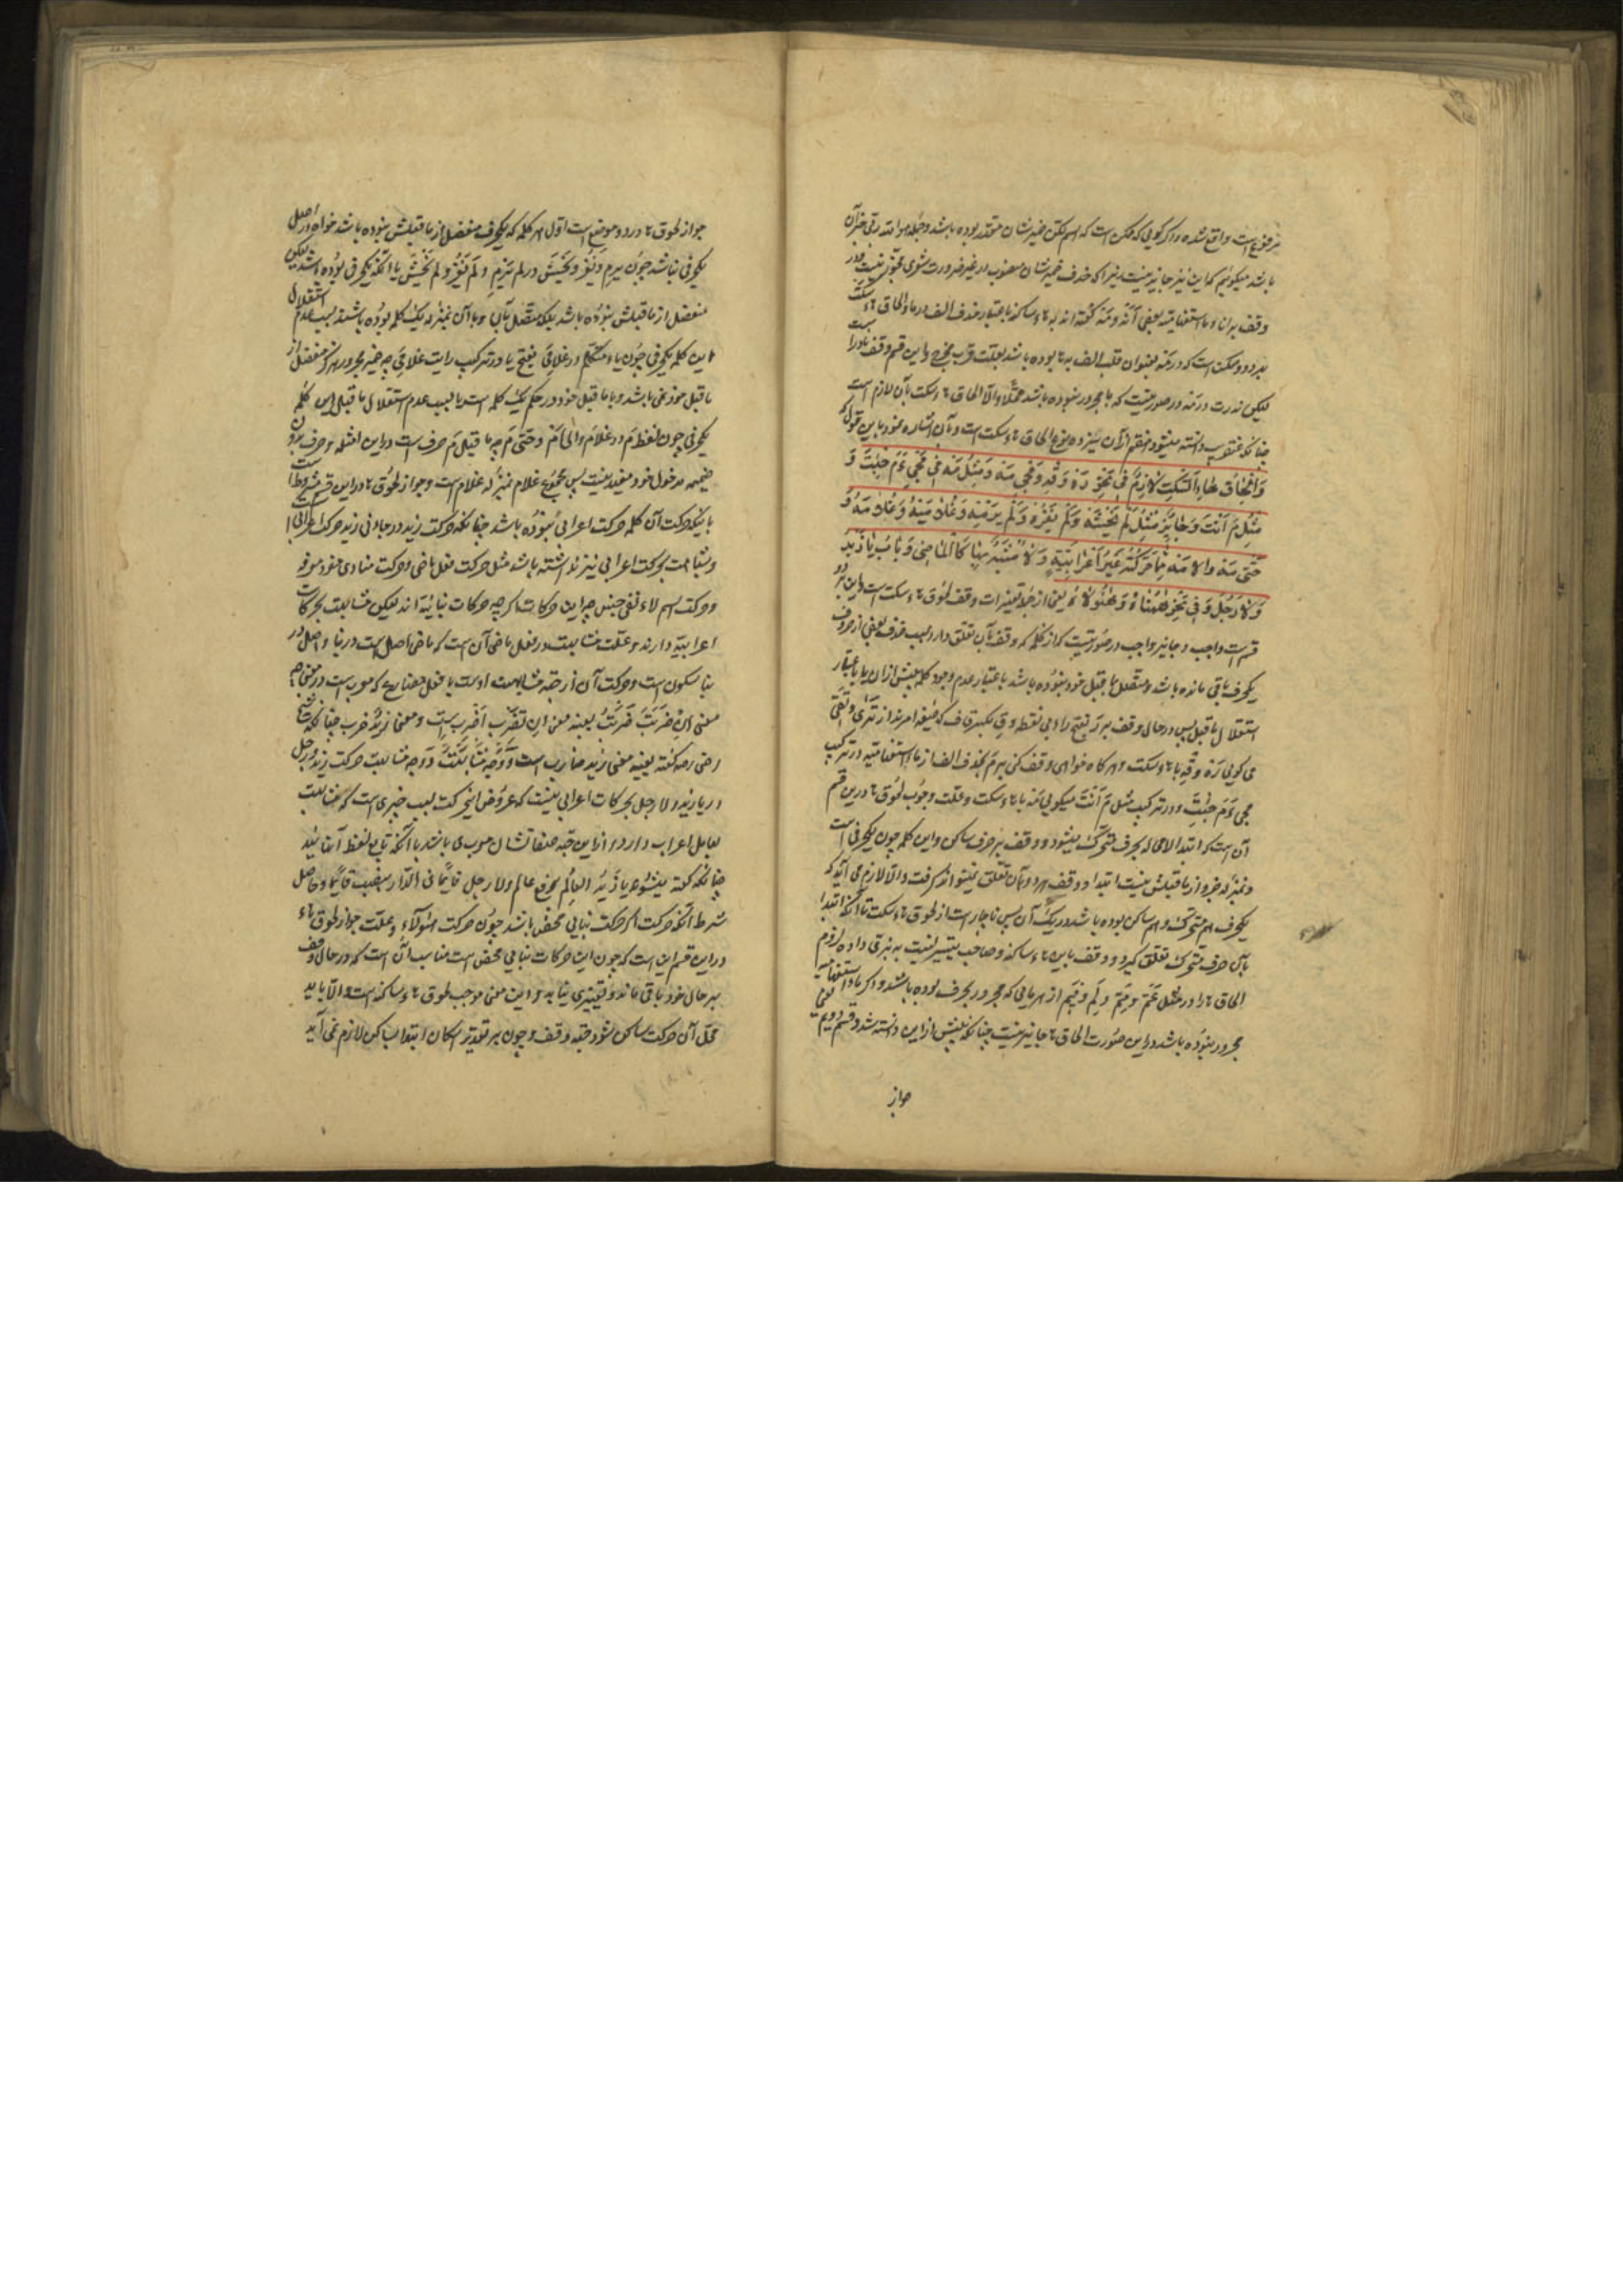 مرفوع است واقع شده و اگر گویی که ممکن است که اسم لکن ضمیر شان مقدر بوده باشد و جمله هو الله ربی خبر آن
باشد میگوئیم که این نیز جایز نیست زیرا که حذف ضمیر شان منصوب در غیر ضرورت شعری مجوز نیست و در
وقف بر انا و ما استفهامیه بعضی آنه و مه گفته اند به هاء ساکنه باعتبار حذف الف در ما و الحاق هاء سکت
در هر دو و ممکن است که در مه بعنوان قلب الف به ها بوده باشد بعلت قرب مخرج و این قسم وقف نادر است
لیکن ندرت در مه در صورتیست که ما مجرور نبوده باشد مثلا و الا الحاق هاء سکت بآن لازم است
چنانکه عنقریب دانسته میشود هفتم از آن سیزده نوع الحاق هاء سکت است و بآن اشاره نمود باین قول که
وَاِلْحٰاقُ هٰاءِ السَّکْتِ لٰازِمٌ فی نَحْوِ رَهْ وَقِهْ وَمَجیءَ مَهْ وَمِثْلُ مَهْ فی مَجیءَ مَ جِئْتَ وَ
مِثْلُ مَ اَنْتَ وَجٰایِزٌ مِثْلُ لَمْ یَخْشَهْ وَلَمْ یَغْزُهْ وَلَمْ یَرْمِهْ وَغُلٰامِیَهْ وَعَلٰامَهْ وَ
حَتّیٰ مَهْ وَالٰامَهْ مِمّٰا حَرَکَتُهُ غَیْرُ اِعْرٰابِیَّةٍ وَلٰا مُشَبَّهَةٍ بِهٰا کَالْمٰاضی وَبٰابِ یٰا زَیْدُ
وَلٰا رَجُلَ وَفی نَحْوِ هٰهُنٰاهْ وَهٰؤُلٰاهْ یعنی از جمله تغییرات وقف لحوق هاء سکت است و این بر دو
قسم است واجب و جایز واجب در صورتیست که از کلمه که وقف بآن تعلق دارد بسبب حذف بعضی از حروف
یکحرف باقی مانده باشد و متصل بما قبل خود نبوده باشد باعتبار عدم وجود کلمه پیش از آن یا باعتبار
استقلال ما قبل پس در حال وقف بر رَ بفتح راء بی نقطه و قِ بکسر قاف که صیغه امرند از تَریٰ و تَقی
می گویی رَه و قِه با هاء سکت و هر گاه خواهی وقف کنی بر مَ بحذف الف از ما استفهامیه در ترکیب
مجیءَ مَ جئتَ و در ترکیب مثل مَ اَنْتَ میگویی مه با هاء سکت و علت وجوب لحوق ها در این قسم
آن است که ابتدا لا محاله بحرف متحرک میشود و وقف بر حرف ساکن و این کلمه چون یکحرفی است
و بمنزله جزو از ما قبلش نیست ابتدا و وقف هر دو بآن تعلق نمیتواند گرفت و الا لازم می آید که
یکحرف هم متحرک و هم ساکن بوده باشد در یک آن پس ناچار است از لحوق هاء سکت تا آنکه ابتدا
بآن حرف متحرک تعلق گیرد و وقف باین هاء ساکنه و صاحب تیسیر نسبت به بزی داده لزوم
الحاق ها را در مثل عَمَّ و مِمَّ و لِمَ و فیمَ از هر مایی که مجرور بحرف بوده باشد و اگر ما استفهامیه
مجرور نبوده باشد در این صورت الحاق ها جایز نیست چنانکه پیش از این دانسته شد و قسم دویم یعنی
جواز
جواز لحوق ها در دو موضع است اول هر کلمه که یکحرف منفصل از ما قبلش نبوده باشد خواه در اصل
یکحرفی نباشد چون یرم و یغز و یخش در لم یَرْمِ و لَمْ یَغْزُ و لم یَخْشَ یا آنکه یکحرفی بوده باشد لیکن
منفصل از ما قبلش نبوده باشد بلکه متصل بآن و با آن بمنزله یک کلمه بوده باشد بسبب عدم استقلال
این کلمه یکحرفی چون یاء متکلم در غلامیَ بفتح یا در ترکیب رایت غلامیَ چه ضمیر مجرور هرگز منفصل از
ما قبل خود نمی باشد و با ما قبل خود در حکم یک کلمه است یا بسبب عدم استقلال ما قبل این کلمه
یکحرفی چون لفظ مَ در علامَ و الیٰ مَ و حتّیٰ مَ چه ما قبل مَ حرف است در این امثله و حرف بدون
ضمیمه مدخول خود مفید نیست پس مجموع علام بمنزله غلام است و جواز لحوق ها در این قسم مشروط است
باینکه حرکت آن کلمه حرکت اعرابی نبوده باشد چنانکه حرکت زید در جاءنی زید حرکت اعرابی است
و مشابهت بحرکت اعرابی نیز نداشته باشد مثل حرکت فعل ماضی و حرکت منادی مفرد معرفه
و حرکت اسم لاء نفی جنس چه این حرکات اگر چه حرکات بنائیه اند لیکن مشابهت بحرکات
اعرابیه دارند و علت مشابهت در فعل ماضی آن است که ماضی اصل است در بنا و اصل در
بنا سکون است و حرکت آن از جهة مشابهت اوست با فعل مضارع که معرب است در معنی چه
معنی اِنْ ضَرَبْتَ ضَرَبْتُ بعینه معنی اِن تَضْرِب اَضْرِب است و معنی زیدٌ ضرب چنانکه شیخ
رضی رضه گفته بعینه معنی زید ضارب است و وجه مشابهت حرکت زید و رجل
در یا زید و لا رجل بحرکات اعرابی نیست که عروض این حرکت بسبب چیزی است که مشابهت
بعامل اعراب دارد و از این جهة صفات ایشان معرب می باشد با آنکه تابع لفظ آنهایند
چنانکه گفته میشود یا زَیدُ العٰالِمُ برفع عالم و لا رجل قائماً فی الدّار بنصب قائماً و حاصل
شرط آنکه حرکت آن حرکت بنایی محض باشد چون حرکت هٰؤلآءِ و علت جواز لحوق هاء
در این قسم این است که چون این حرکات بنایی محض است مناسب آن است که در حال وقف
بر حال خود باقی ماند و تغییری نیابد و این معنی موجب لحوق هاء ساکنه است و الا باید
محل آن حرکت ساکن شود جهة وقف و چون بر تقدیر اسکان ابتدا بساکن لازم نمی آید